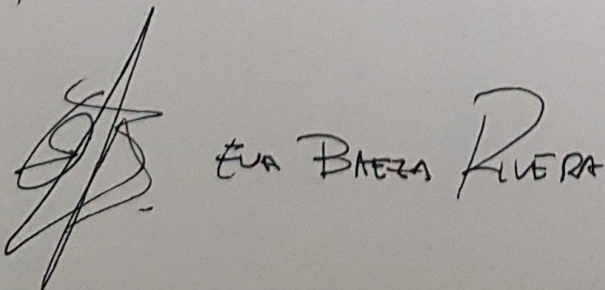 Eva Baeza Rivera